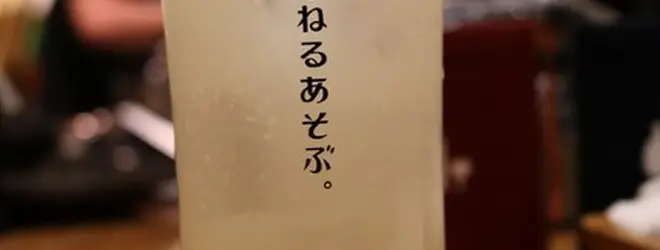 ねるあそぶ。